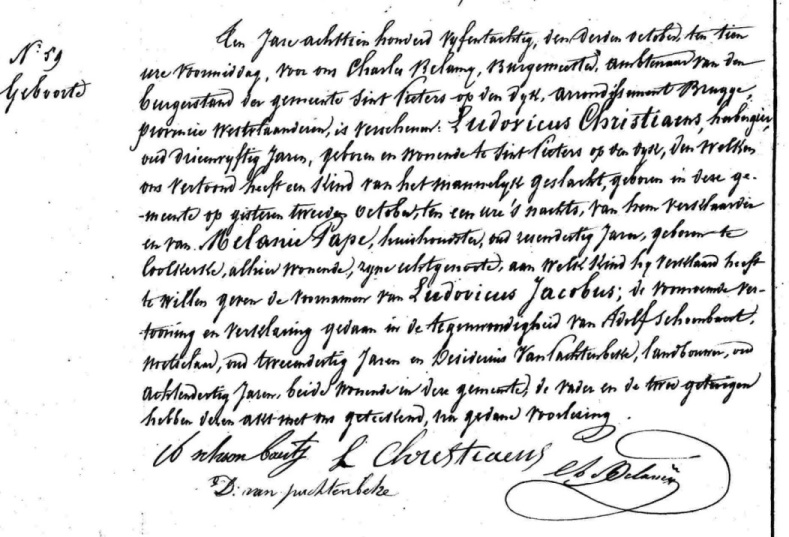 N.º 59
Geboorte
Een Jare achttien honderd vyfentachtig, den derden october, ten tien
ure voormiddag, voor ons Charles Belamy, Burgemeester, ambtenaar van den
burgerstand der gemeente Sint Pieters op den dyk, arrondissement Brugge,
provincie Westvlaanderen, is verschenen: Ludovicus Christiaens, herbergier,
oud dryenvyftig Jaren, geboren en wonende te Sint Pieters op den dyk, den welken
ons vertoond heeft een Kind van het mannelyk geslacht, geboren in deze ge-
meente op gisteren tweeden October, ten een ure 's nachts, van hem verklaarder
en van Melanie Pape, huishoudster, oud zesendertig Jaren, geboren te
Coolkerke, alhier wonende, zyne echtgenoote, aan welk Kind hy verklaard heeft
te willen geven de voornamen van Ludovicus Jacobus; de voornoemde ver-
tooning en verklaring gedaan in de tegenwoordigheid van Adolf Schoonbaert,
oud tweeendertig Jaren en Desiderius Van Pachtenbeke, landbouwer, oud
achtendertig Jaren, beide wonende in deze gemeente; de vader en de twee getuigen
hebben dezen akt met ons geteekend, na gedane voorlezing.
schoonbaert L Christiaens
D. van puchtenbeke
Ch. Belamy